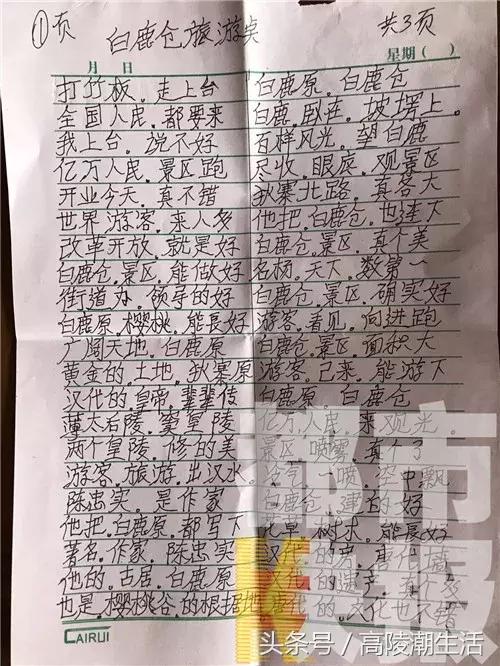 ①页
白鹿仓旅游桌
共3页
月 日
星期（ ）
打竹板.走上台 白鹿原.白鹿仓
全国人民.都要来 白鹿.卧在.坡塄上.
我上台.说不好 百样风光.望白鹿
亿万人民.景区跑 尽收.眼底.观景区
开业今天.真不错 狄寨北路.真各大
世界游客.来人多 他把.白鹿仓.也连下
改革开放.就是好 白鹿仓.景区.真个美
白鹿仓景区.能做好 名杨.天下.数第一
街道办.领导的好 白鹿仓.景区.确实好
白鹿原.樱桃.能長好 游客.看见.向进跑
广阔天地.白鹿原 白鹿仓.景区.面积大
黄金的.土地.狄寨原 游客.已来.能游下
汉代的皇帝.辈辈传 白鹿原.白鹿仓
薄太后陵.窦皇陵 亿万.人民.来观光.
两个皇陵.修的美 景区.喷雾.真个了
游客.旅游.出汉水 冷气.一喷.空中飘
陈忠实.是作家 白鹿仓.建的好
他把.白鹿原.都写下 花草.树木.能長好
著名.作家.陈忠实 汉代的
他的.古居.白鹿原 汉代.的遗产.真个多
也是.樱桃谷.的根据地 唐代.的.文化也不错
CAIRUI
都市
报
头条号／高陵潮生活